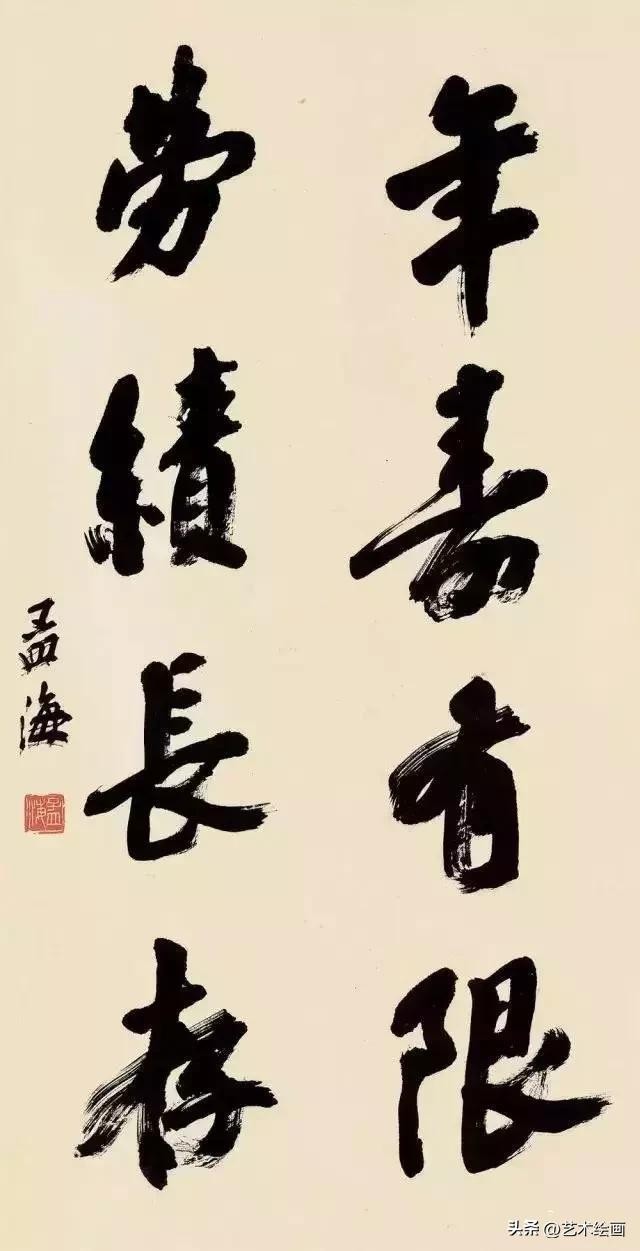 年壽有限
勞績長存
孟海
孟海
头条 @艺术绘画